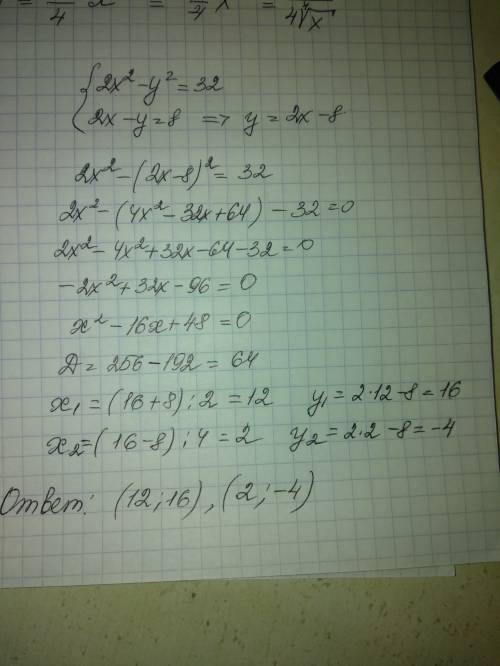 = 1/4 x = 7/4 x = 1/(4∜x)
{ 2x² - y² = 32
2x - y = 8 => y = 2x - 8
2x² - (2x-8)² = 32
2x² - (4x² - 32x + 64) - 32 = 0
2x² - 4x² + 32x - 64 - 32 = 0
-2x² + 32x - 96 = 0
x² - 16x + 48 = 0
Д = 256 - 192 = 64
x₁ = (16+8) : 2 = 12 y₁ = 2·12 - 8 = 16
x₂ = (16-8) : 4 = 2 y₂ = 2·2 - 8 = -4
Ответ: (12; 16), (2; -4)